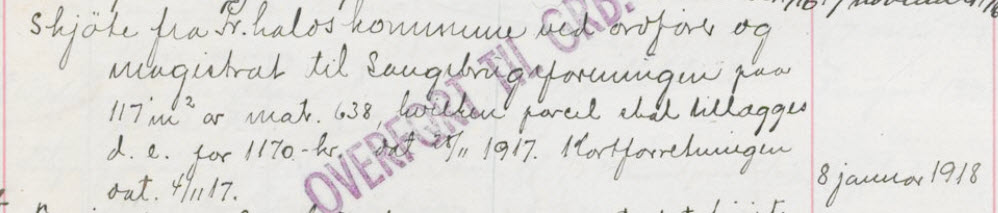 Skjöte fra Fr.halds kommune ved ordförer og
magistrat til Saugbrugsforeningen paa
117 m² av matr. 638 hvilken parcel skal tillægges
d. e. for 1170.- kr. dat 28/11 1917. Kartforretningen
dat. 4/11 17.
8 januar 1918
OVERFØRT TIL GRB.